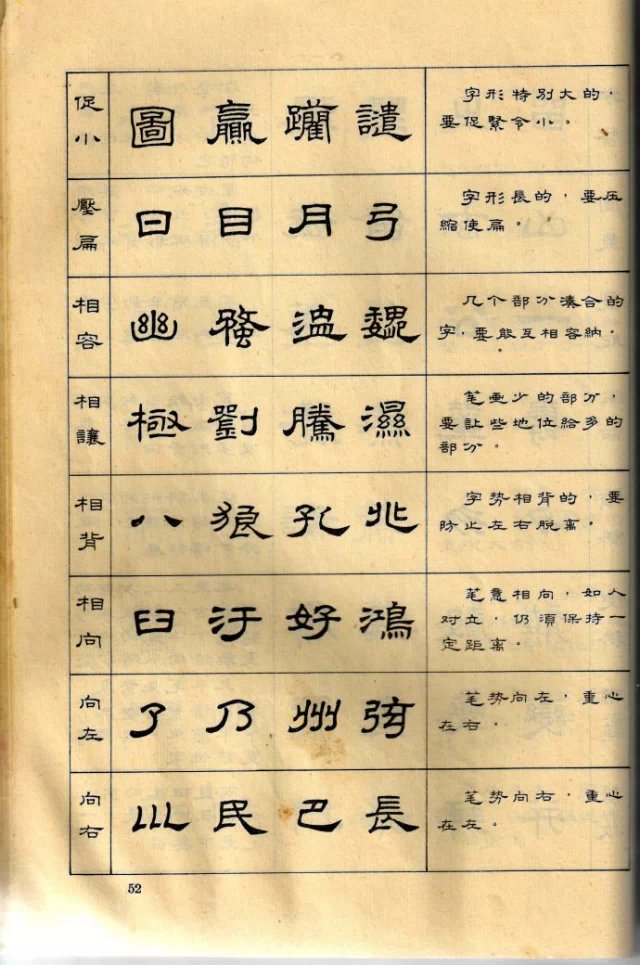 促小
圖 贏 譴
字形特別大的，
要促緊令小。
壓扁
曰 目 月 弓
字形長的，要压
縮使扁。
相容
幽 魏
几个部分凑合的
字，要能互相容納。
相讓
極 劉 騰 濕
笔画少的部分，
要让些地位給多的
部分。
相背
八 狼 孔
字势相背的，要
防止左右脫离。
相向
臼 汙 好 鴻
笔意相向，如人
对立，仍須保持一
定距离。
向左
了 乃 州 弦
笔势向左，重心
在右。
向右
川 民 巴 長
笔势向右，重心
在左。
52